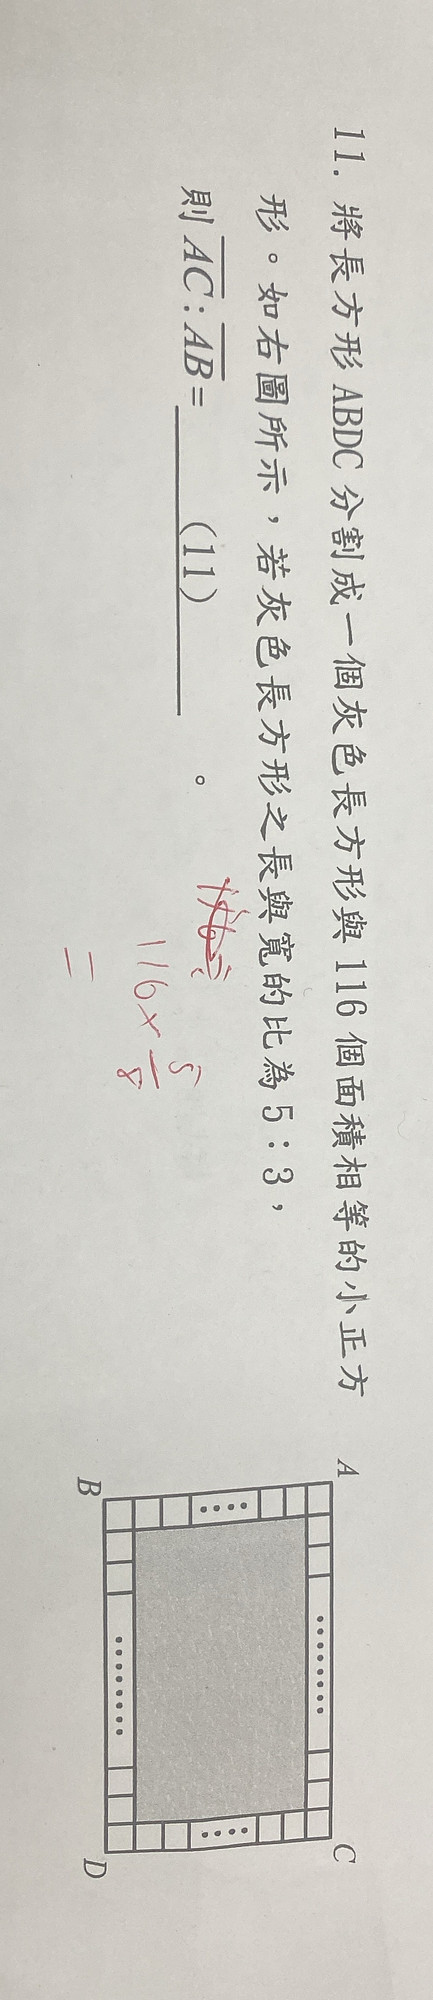 11. 將長方形 ABDC 分割成一個灰色長方形與 116 個面積相等的小正方
形。如右圖所示，若灰色長方形之長與寬的比為 5：3，
則 AC：AB= (11) 。
116 × 5/8
=
A
C
B
D